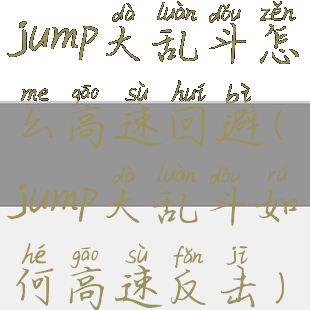 dà luàn dǒu zěn
jump大乱斗怎
me gāo sù huí bì
么高速回避(
dà luàn dǒu rú
jump大乱斗如
hé gāo sù fǎn jī
何高速反击)